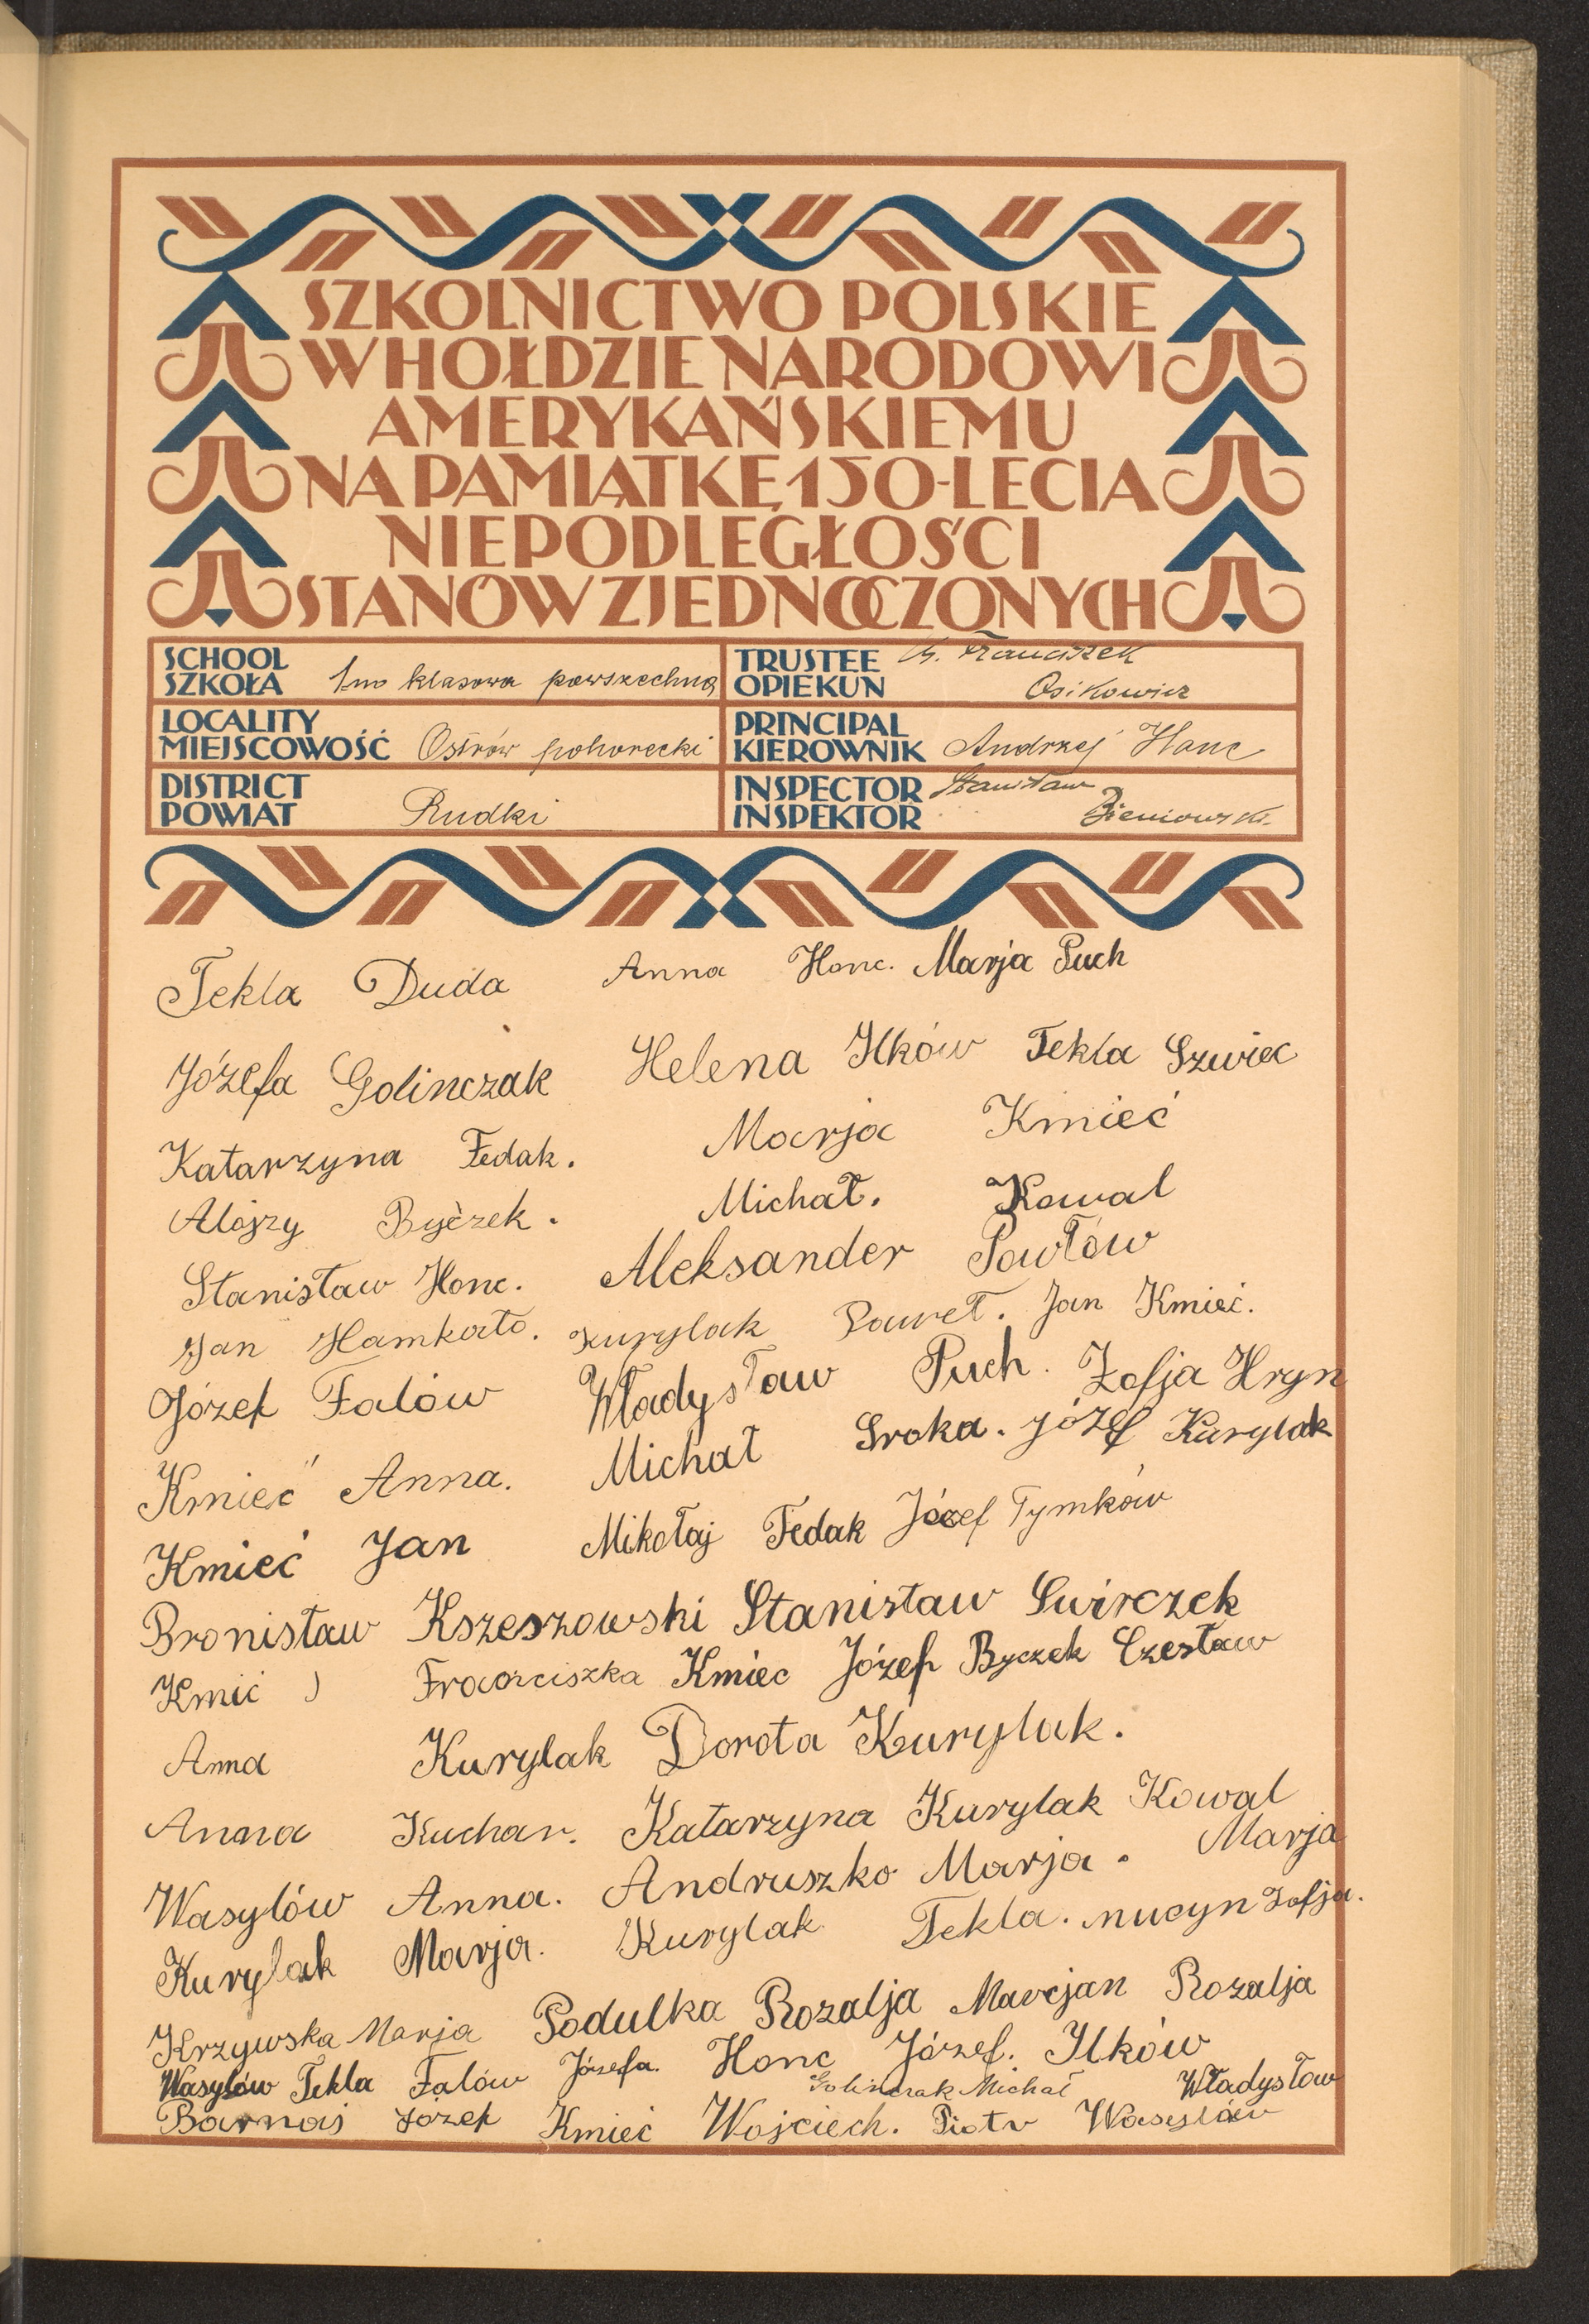 SZKOLNICTWO POLSKIE
W HOŁDZIE NARODOWI
AMERYKAŃSKIEMU
NA PAMIĄTKĘ 150-LECIA
NIEPODLEGŁOŚCI
STANÓW ZJEDNOCZONYCH
SCHOOL
SZKOŁA 1no klasowa powszechna
TRUSTEE Ks. Franciszek
OPIEKUN Osikowicz
LOCALITY
MIEJSCOWOŚĆ Ostrów pohorecki
PRINCIPAL
KIEROWNIK Andrzej Hanc
DISTRICT
POWIAT Rudki
INSPECTOR Stanisław
INSPEKTOR Bieniowski.
Tekla Duda Anna Honc. Marja Puch
Józefa Golinczak Helena Ilków Tekla Szwiec
Katarzyna Fedak. Marja Kmieć
Alojzy Byczek. Michał. Kowal
Stanisław Honc. Aleksander Pawłów
Jan Hamkało. Kurylak Paweł. Jan Kmieć.
Józef Falów Władysław Puch. Zofja Hryn
Kmieć Anna. Michał Sroka. Józef Kurylak
Kmieć Jan Mikołaj Fedak Józef Tymków
Bronisław Kszeszowski Stanisław Swirczek
Kmić J Franciszka Kmiec Józef Byczek Czesław
Anna Kurylak Dorota Kurylak.
Anna Kuchar. Katarzyna Kurylak Kowal
Wasylów Anna. Andruszko Marja. Marja
Kurylak Marja. Kurylak Tekla. Mucyn Zofja.
Krzywska Marja Podulka Rozalja Marcjan Rozalja
Wasylów Tekla Falów Józefa. Honc Józef. Ilków
Golinczak Michał Władysław
Barnaś Józef Kmieć Wojciech. Piotr Wasylów